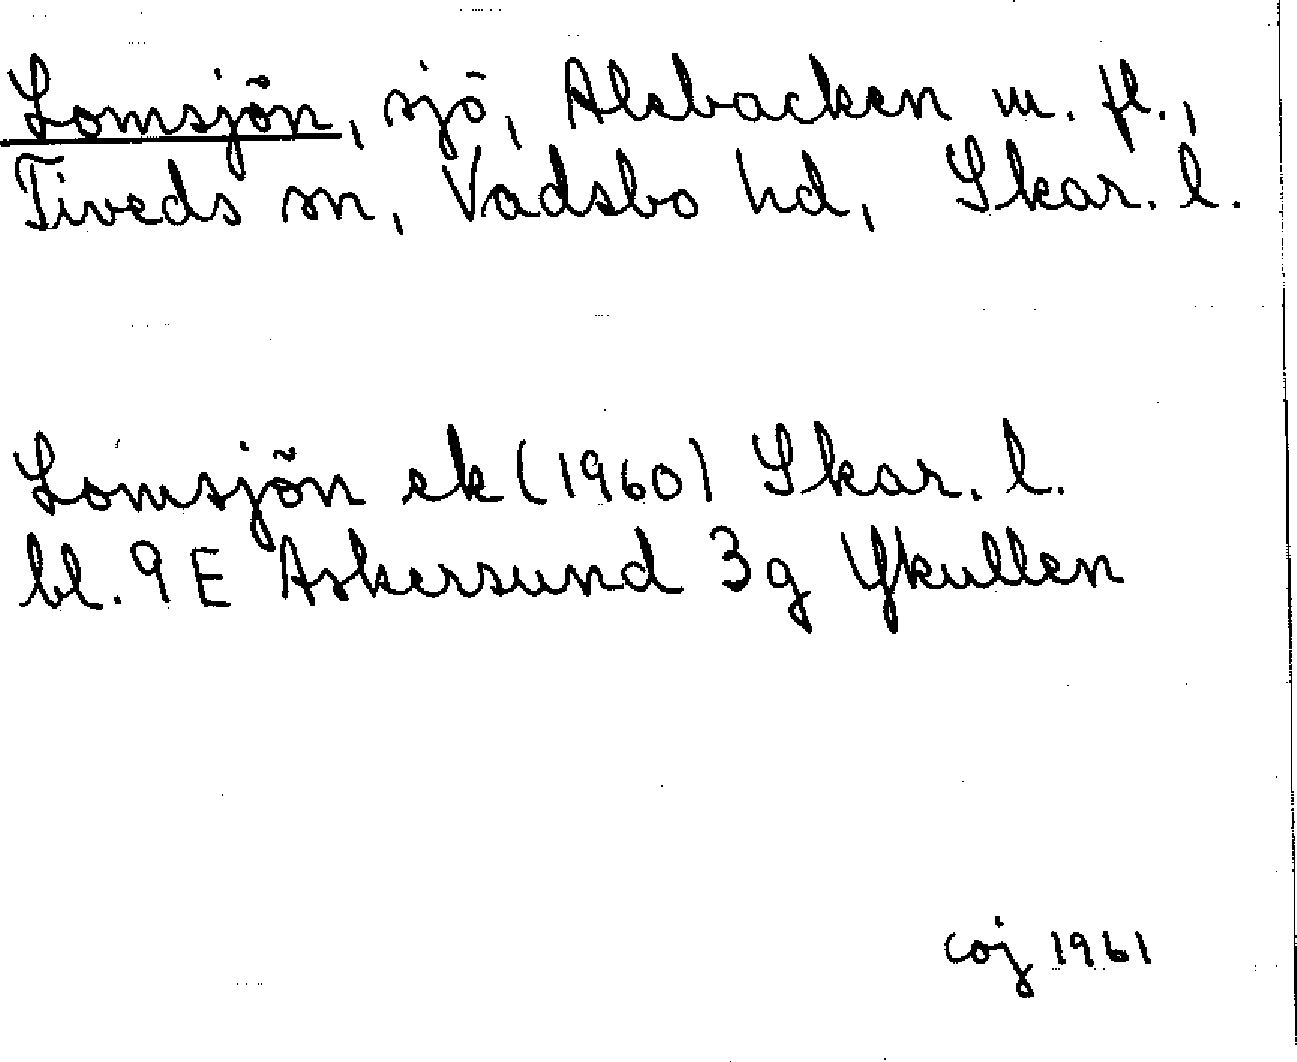 Lomsjön, sjö, Alebacken m. fl.,
Tiveds sn, Vadsbo hd, Skar. l.
Lomsjön ek (1960) Skar. l.
bl. 9 E Askersund 3g Ykullen
coj 1961